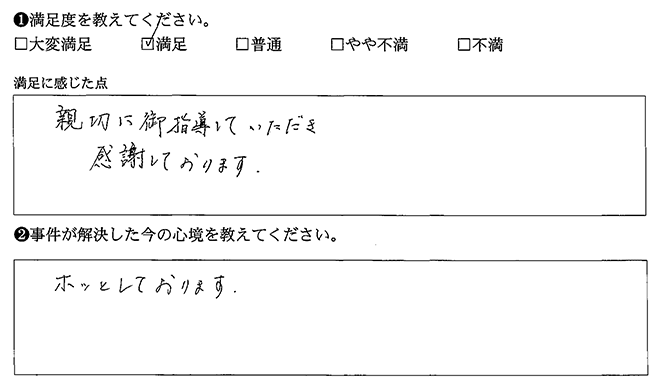 ❶満足度を教えてください。
□大変満足 ☑満足 □普通 □やや不満 □不満
満足に感じた点
親切に御指導していただき
感謝しております.
❷事件が解決した今の心境を教えてください。
ホッとしております.